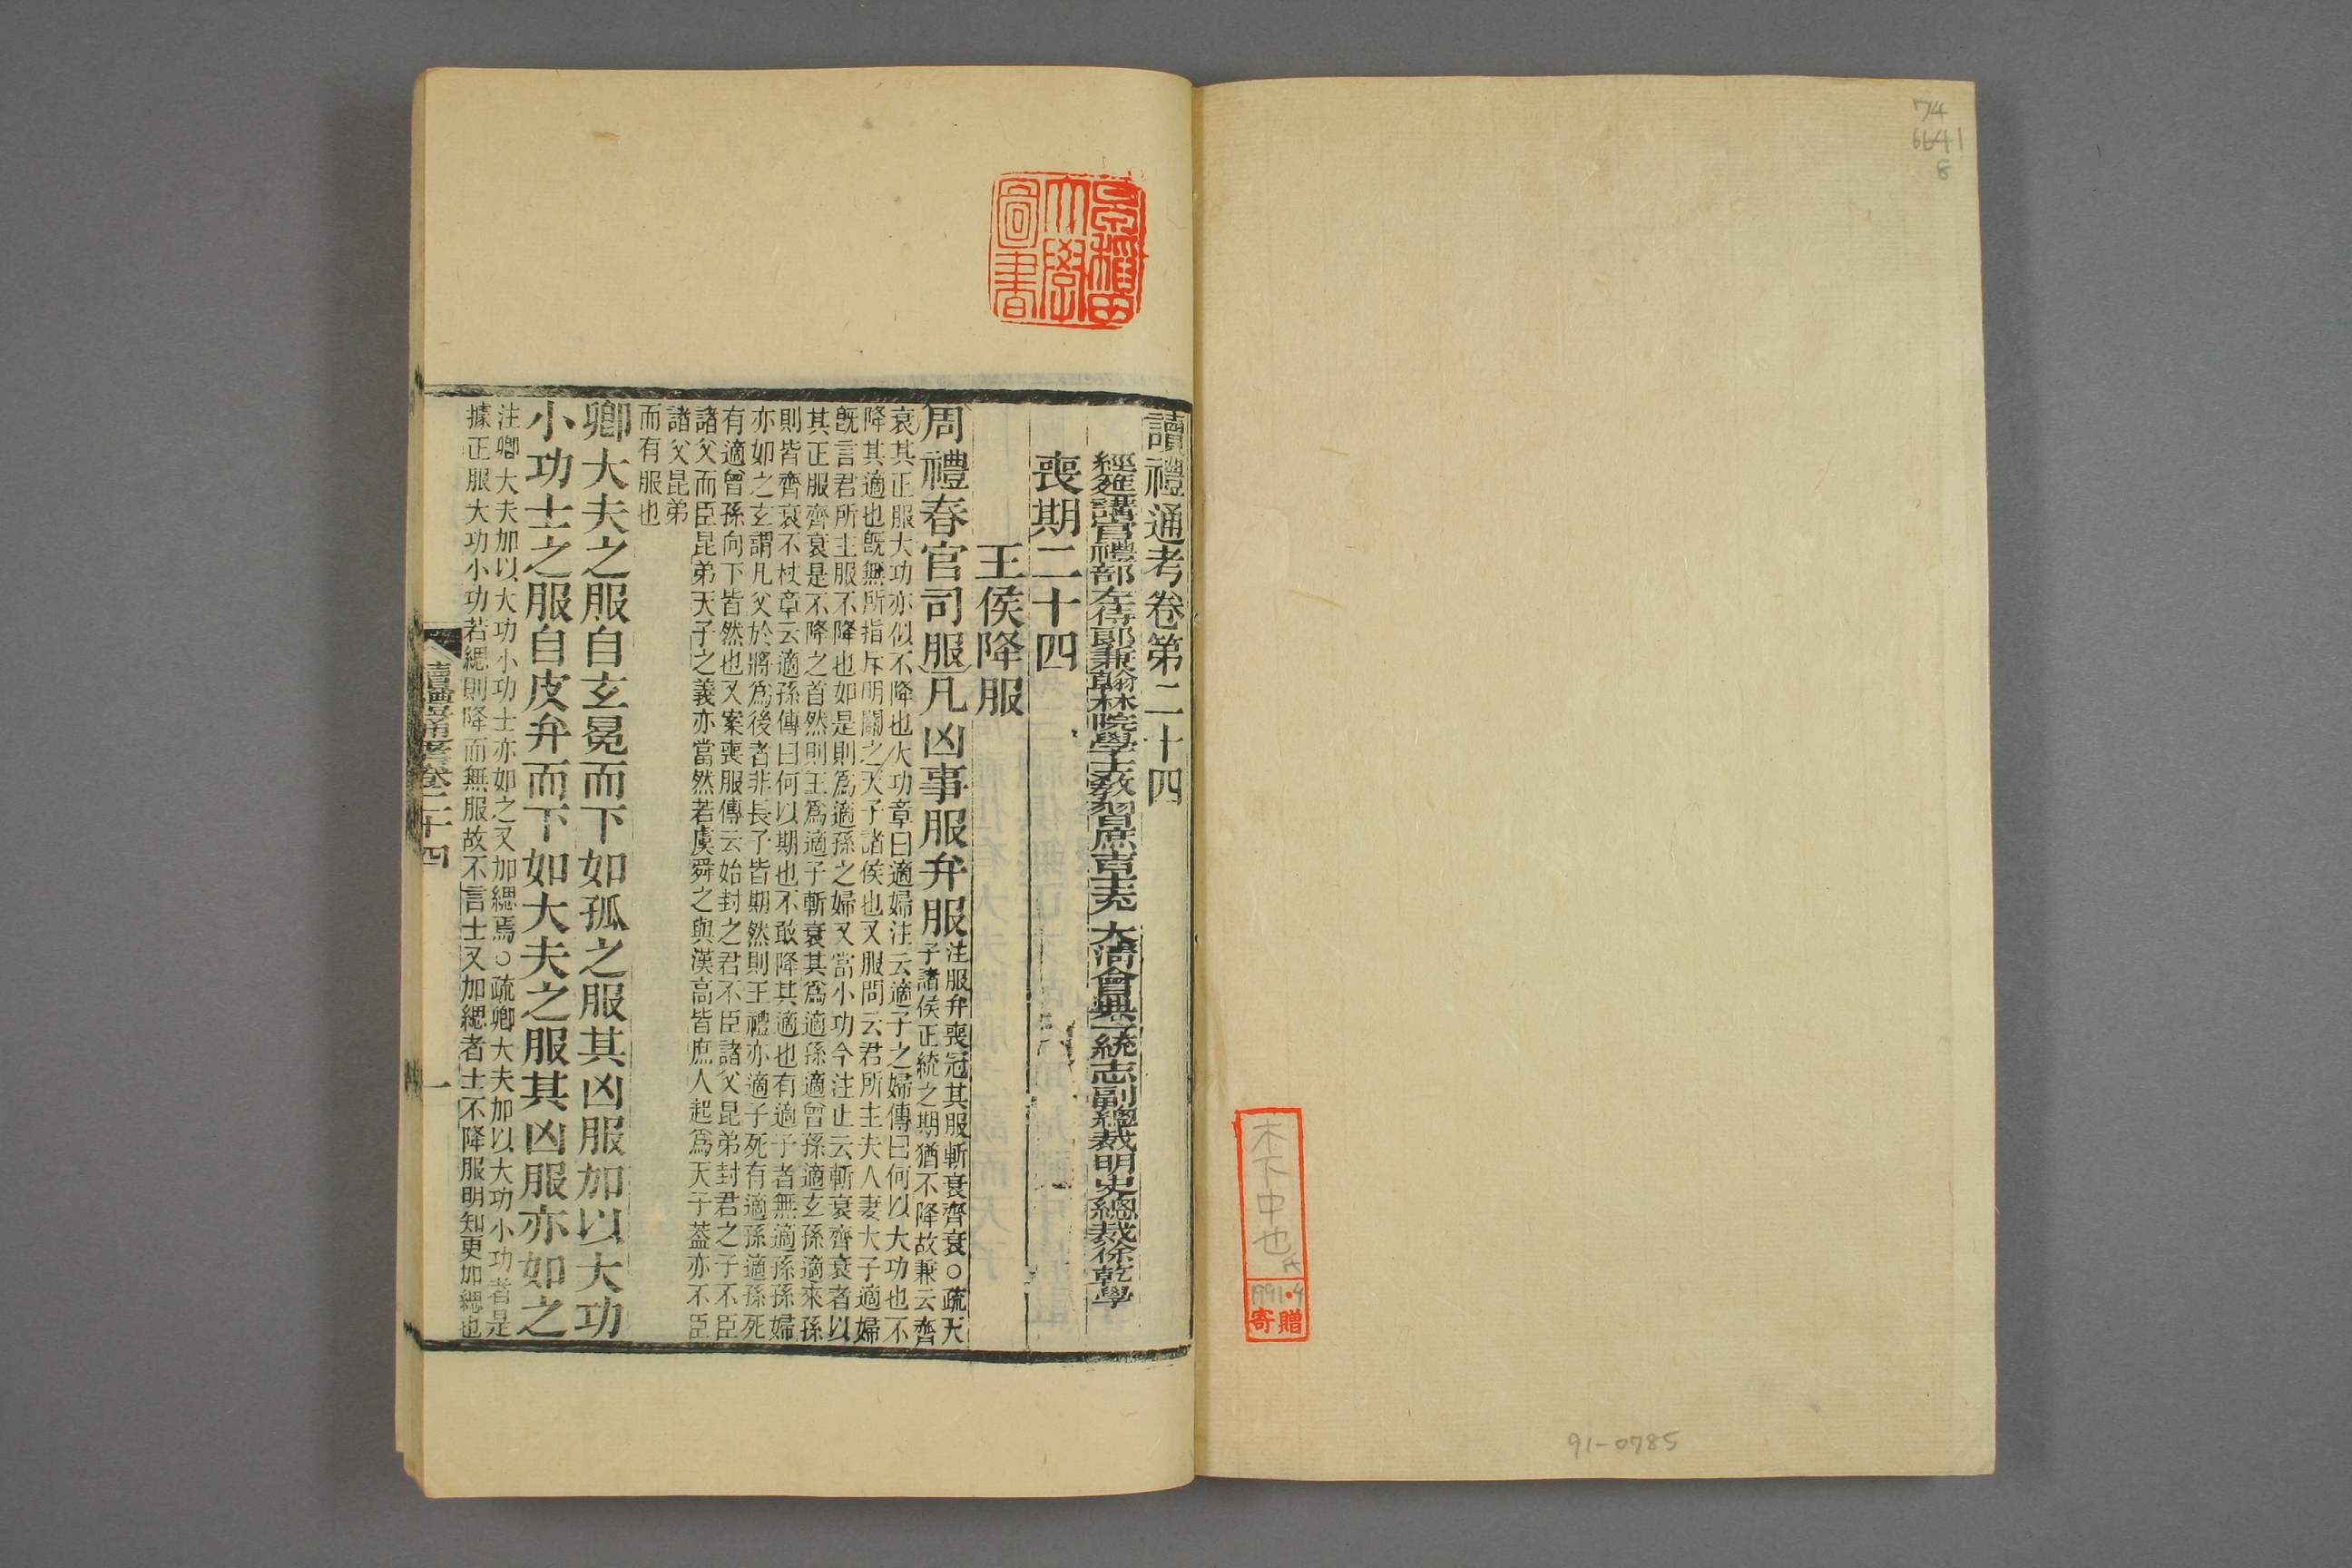 74
6641
8
木下中也氏
1991.4
寄贈
91-0785
早稲田
大學
圖書
讀禮通考卷第二十四
經筵講官禮部左侍郎兼翰林院學士教習庶吉士充 大清會典一統志副總裁明史總裁徐乾學
喪期二十四
王侯降服
周禮春官司服凡凶事服弁服
注服弁喪冠其服斬衰齊衰○疏天
子諸侯正統之期猶不降故兼云齊
衰其正服大功亦似不降也大功章曰適婦注云適子之婦傳曰何以大功也不
降其適也旣無所指斥明關之天子諸侯也又服問云君所主夫人妻大子適婦
旣言君所主服不降也如是則爲適孫之婦又當小功今注止云斬衰齊衰者以
其正服齊衰是不降之首然則王爲適子斬衰其爲適孫適曾孫適玄孫適來孫
則皆齊衰不杖章云適孫傳曰何以期也不敢降其適也有適子者無適孫孫婦
亦如之玄謂凡父於將爲後者非長子皆期然則王禮亦適子死有適孫適孫死
有適曾孫向下皆然也又案喪服傳云始封之君不臣諸父昆弟封君之子不臣
諸父而臣昆弟天子之義亦當然若虞舜之與漢高皆庶人起爲天子葢亦不臣
諸父昆弟
而有服也
卿大夫之服自玄冕而下如孤之服其凶服加以大功
小功士之服自皮弁而下如大夫之服其凶服亦如之
注卿大夫加以大功小功士亦如之又加緦焉○疏卿大夫加以大功小功者是
據正服大功小功若緦則降而無服故不言士又加緦者士不降服明知更加緦也
讀禮通考卷二十四
一